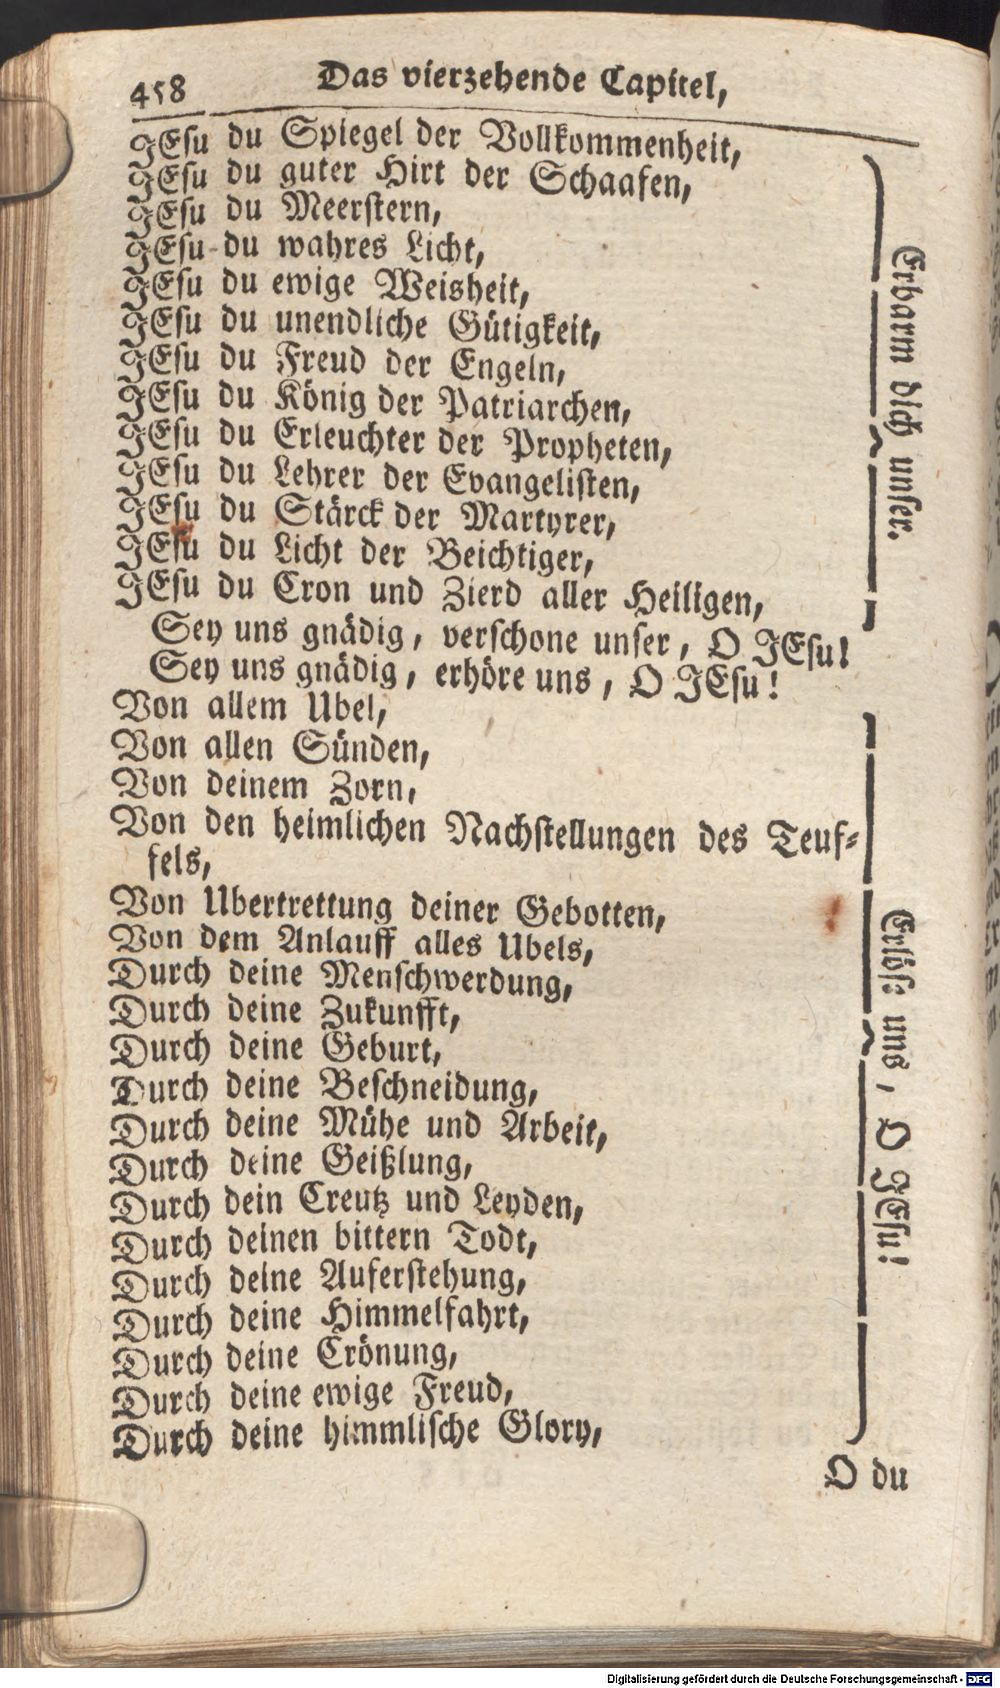 458 Das vierzehende Capitel,
JEsu du Spiegel der Vollkommenheit,
JEsu du guter Hirt der Schaafen,
JEsu du Meerstern,
JEsu du wahres Licht,
JEsu du ewige Weisheit,
JEsu du unendliche Gütigkeit,
JEsu du Freud der Engeln,
JEsu du König der Patriarchen,
JEsu du Erleuchter der Propheten,
JEsu du Lehrer der Evangelisten,
JEsu du Stärck der Martyrer,
JEsu du Licht der Beichtiger,
JEsu du Cron und Zierd aller Heiligen,
Erbarm dich unser.
Sey uns gnädig, verschone unser, O JEsu!
Sey uns gnädig, erhöre uns, O JEsu!
Von allem Ubel,
Von allen Sünden,
Von deinem Zorn,
Von den heimlichen Nachstellungen des Teuf-
fels,
Von Ubertrettung deiner Gebotten,
Von dem Anlauff alles Ubels,
Durch deine Menschwerdung,
Durch deine Zukunfft,
Durch deine Geburt,
Durch deine Beschneidung,
Durch deine Mühe und Arbeit,
Durch deine Geißlung,
Durch dein Creutz und Leyden,
Durch deinen bittern Todt,
Durch deine Auferstehung,
Durch deine Himmelfahrt,
Durch deine Crönung,
Durch deine ewige Freud,
Durch deine himmlische Glory,
Erlöse uns, O JEsu!
O du
Digitalisierung gefördert durch die Deutsche Forschungsgemeinschaft - DFG